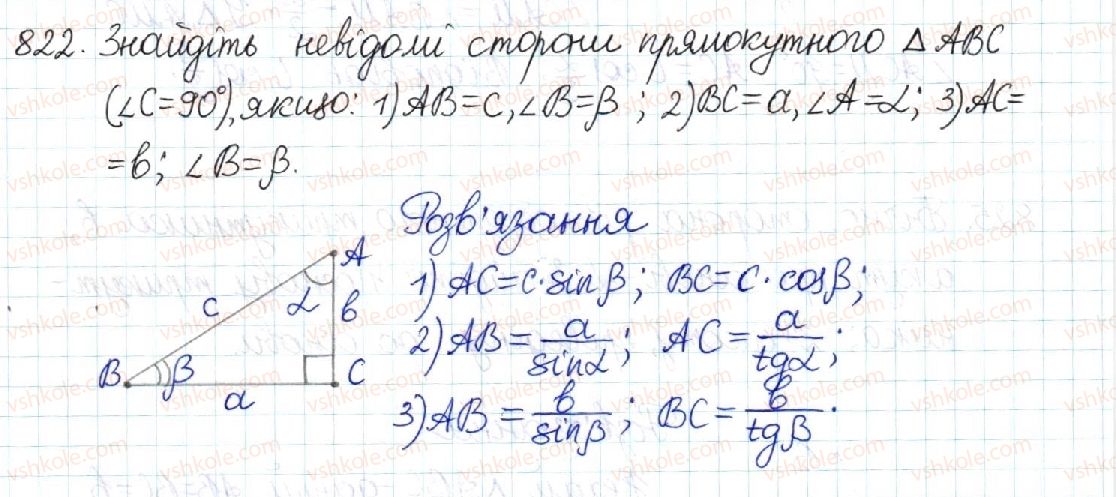 822. Знайдіть невідомі сторони прямокутного △ABC
(∠C=90°), якщо: 1) AB=c, ∠B=β; 2) BC=a, ∠A=α; 3) AC=
=b; ∠B=β.
Розв'язання
A
α
c
b
B
β
C
a
1) AC=c·sinβ; BC=c·cosβ;
2) AB=a/sinα; AC=a/tgα;
3) AB=b/sinβ; BC=b/tgβ.
vshkole.com